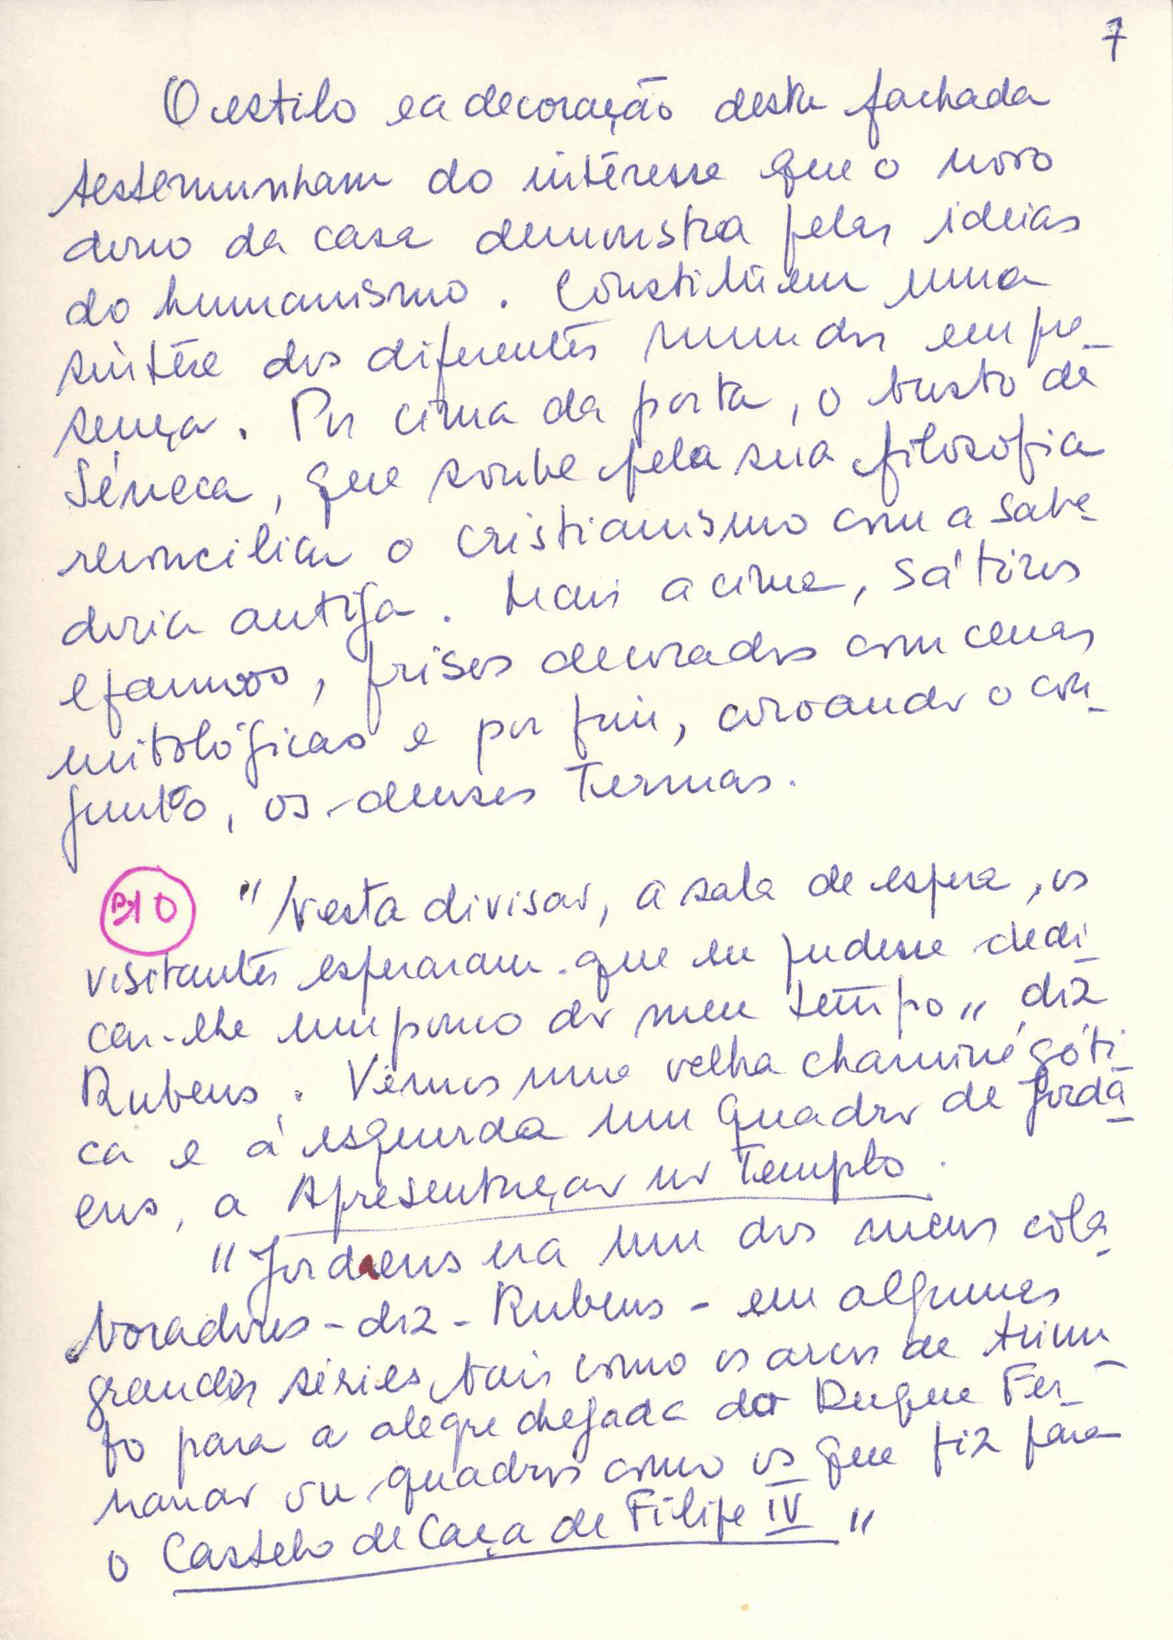 7
O estilo e a decoração desta fachada
testemunham do intéresse que o novo
dono da casa demonstra pelas ideias
do humanismo. Constituem uma
sintése dos diferentes mundos em pre-
sença. Por cima da porta, o busto de
Séneca, que soube pela sua filosofia
reconciliar o cristianismo com a sabe-
doria antiga. Mais acima, Sátiros
e faunos, frisos decorados com cenas
mitológicas e por fim, coroando o con-
junto, os deuses Termas.
"Nesta divisão, a sala de espera, os
visitantes esperaram que eu pudesse dedi-
car-lhe um pouco do meu tempo", diz
Rubens. Vemos uma velha chaminé góti-
ca e á esquerda um quadro de Jordã-
ens, a Apresentação no Templo.
"Jordaens era um dos meus cola-
boradores - diz - Rubens - em algumas
grandes séries tais como os arcos de triun-
fo para a alegre chegada do Duque Fer-
nando ou quadros como os que fiz para
o Castelo de Caça de Filipe IV"